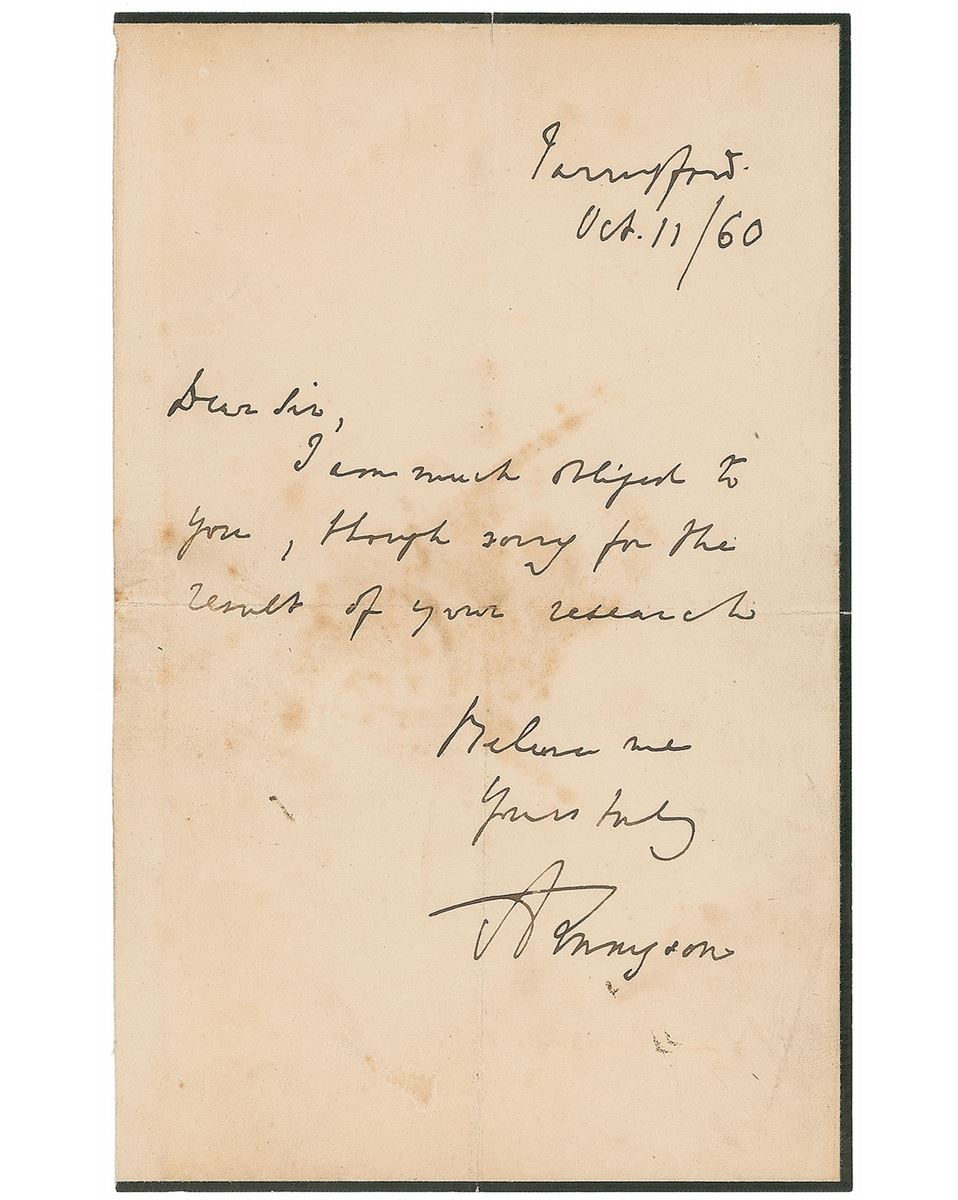 Farringford.
Oct. 11/60
Dear Sir,
I am much obliged to
you, though sorry for the
result of your research
Believe me
Yours truly
ATennyson